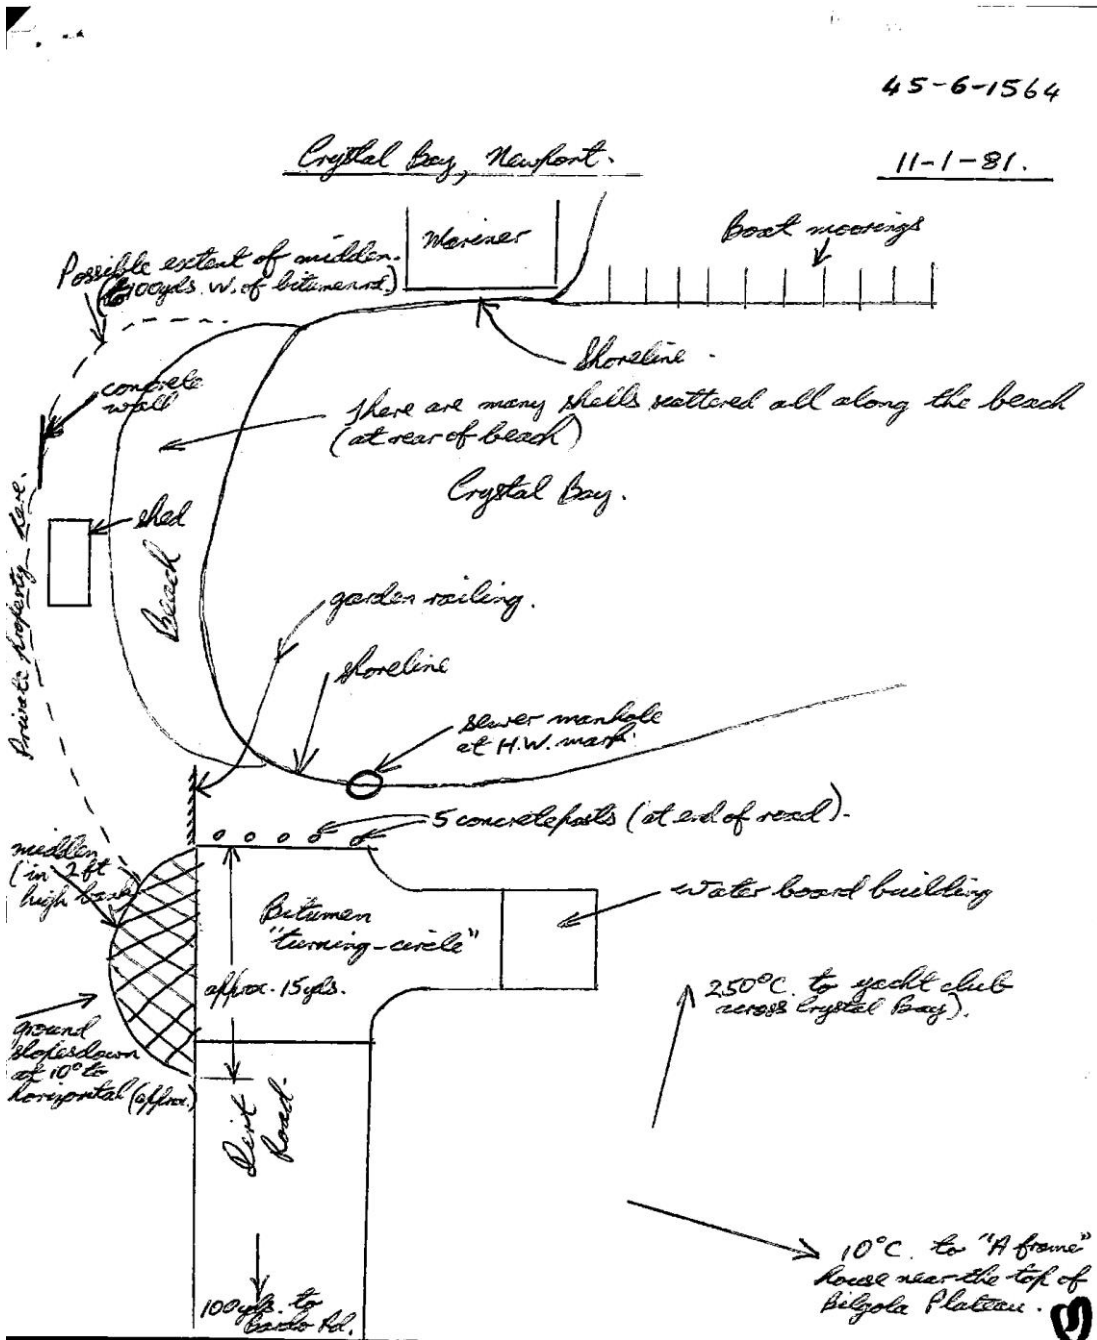 45-6-1564
Crystal Bay, Newport.
11-1-81.
Mariner
Boat moorings
Possible extent of midden.
(to 100yds. W. of bitumen rd.)
Shoreline.
concrete
wall
There are many shells scattered all along the beach
(at rear of beach)
Crystal Bay.
Private property here.
shed
Beach
garden railing.
shoreline
sewer manhole
at H.W. mark.
5 concrete posts (at end of road).
midden
(in 2ft
high bank)
Bitumen
"turning-circle"
water board building
approx. 15yds.
250°C. to yacht club
across Crystal Bay).
ground
slopes down
at 10° to
horizontal (approx.)
Dirt
Road.
10°C. to "A frame"
house near the top of
Bilgola Plateau.
100yds. to
Bardo Rd.